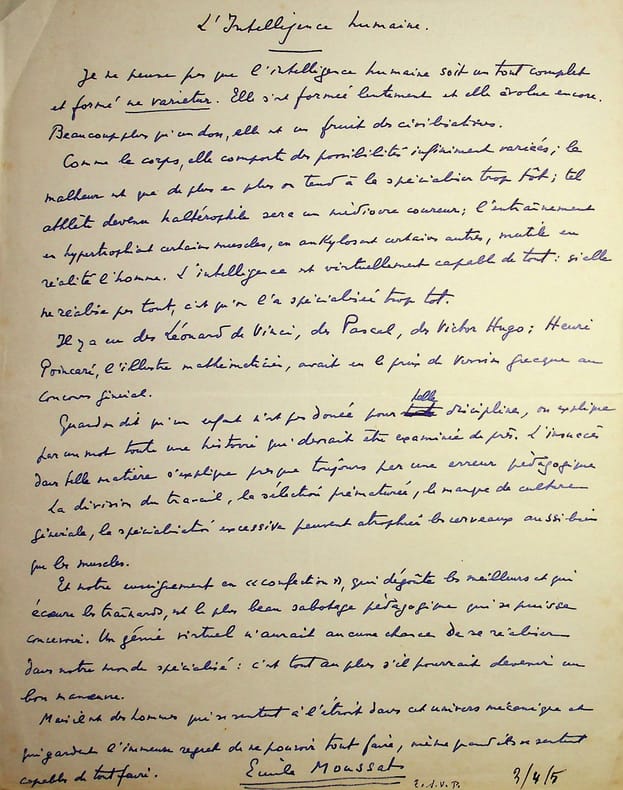 L'Intelligence humaine.
Je ne pense pas que l'intelligence humaine soit un tout complet
et formé ne varietur. Elle s'est formée lentement et elle évolue encore.
Beaucoup plus qu'un don, elle est un fruit des civilisations.
Comme le corps, elle comporte des possibilités infiniment variées; le
malheur est que de plus en plus on tend à la spécialiser trop tôt; tel
athlète devenu haltérophile sera un médiocre coureur; l'entraînement
en hypertrophiant certains muscles, en ankylosant certains autres, mutile en
réalité l'homme. L'intelligence est virtuellement capable de tout: si elle
ne réalise pas tout, c'est qu'on l'a spécialisée trop tôt.
Il y a eu des Léonard de Vinci, des Pascal, des Victor Hugo; Henri
Poincaré, l'illustre mathématicien, avait eu le prix de Version grecque au
concours général.
Quand on dit qu'un enfant n'est pas doué pour telle discipline, on explique
par un mot toute une histoire qui devrait être examinée de près. L'insuccès
dans telle matière s'explique presque toujours par une erreur pédagogique
La division du travail, la sélection prématurée, le manque de culture
générale, la spécialisation excessive peuvent atrophier les cerveaux aussi bien
que les muscles.
Et notre enseignement en «confection», qui dégoûte les meilleurs et qui
écœure les traînards, est le plus beau sabotage pédagogique qui se puisse
concevoir. Un génie virtuel n'aurait aucune chance de se réaliser
dans notre monde spécialisé: c'est tout au plus s'il pourrait devenir un
bon manœuvre.
Mais il est des hommes qui se sentent à l'étroit dans cet univers mécanique et
qui gardent l'immense regret de ne pouvoir tout faire, même quand ils se sentent
capables de tout faire.
Emile Moussat
3/4/5